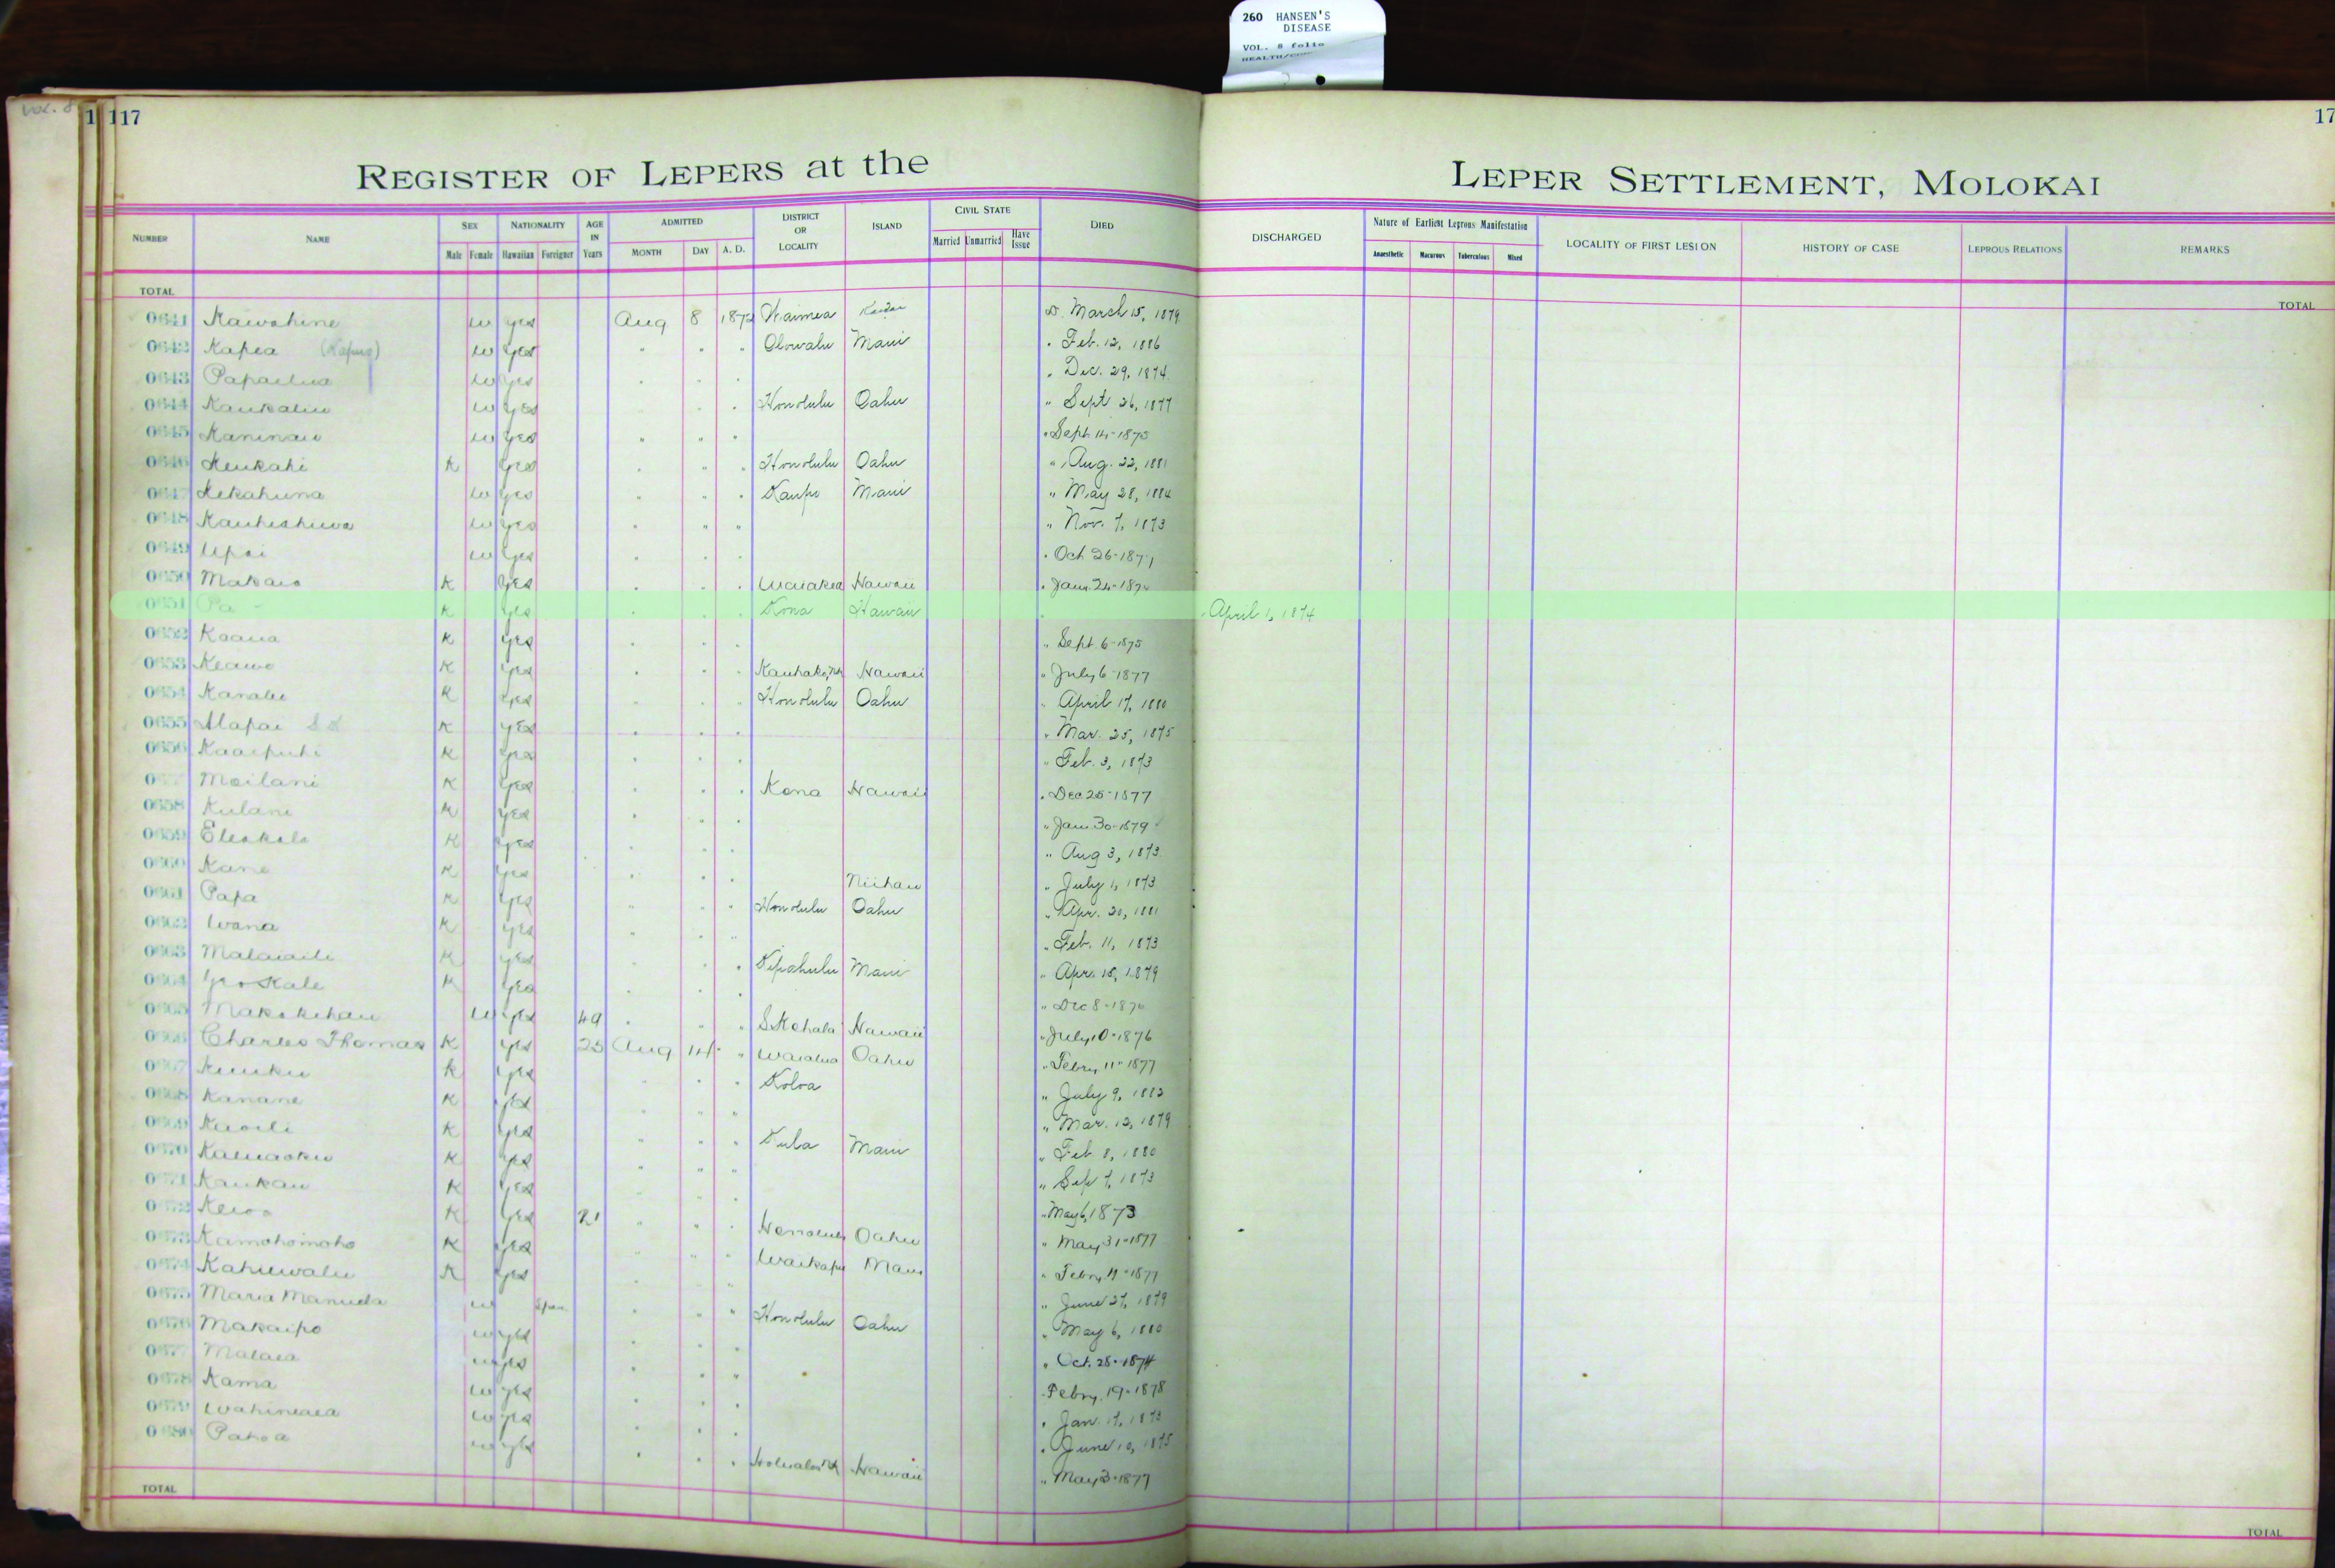 260 HANSEN'S
DISEASE
VOL. 8 folio
VOL. 8
117
17
REGISTER OF LEPERS at the
LEPER SETTLEMENT, MOLOKAI
NUMBER NAME SEX Male Female NATIONALITY Hawaiian Foreigner AGE IN Years ADMITTED MONTH DAY A. D. DISTRICT OR LOCALITY ISLAND CIVIL STATE Married Unmarried Have Issue DIED DISCHARGED Nature of Earliest Leprous Manifestation Anaesthetic Macurous Tuberculous Mixed LOCALITY OF FIRST LESION HISTORY OF CASE LEPROUS RELATIONS REMARKS
TOTAL TOTAL
0641 Kawahine w yes Aug 8 Waimea Kauai D. March 15, 1879
0642 Kapea w yes " " " Olowalu Maui " Feb. 12, 1886
0643 Papaelua w yes " " " " Dec. 29, 1874
0644 w yes " " Honolulu Oahu " Sept 26, 1877
0645 Kaninau w yes " " " " Sept 14-1875
0646 Keukahi K yes " " " Honolulu Oahu " Aug. 22, 1881
0647 Kekahuna w yes " " " Kaupo Maui " May 28, 1884
0648 w yes " " " " Nov. 7, 1873
0649 Upai w yes " " " " Oct 26-187
0650 Makaio K yes " " " Waiakea Hawaii " Jany 24-187
0651 Pa K yes " " " Kona Hawaii " April 1, 1874
0652 Koaua K yes " " " " Sept 6-1875
0653 Keawe K yes " " " Hawaii " July 6-1877
0654 K yes " " " Honolulu Oahu " April 17, 1880
0655 Alapai K yes " " " " Mar. 25, 1875
0656 Kaaipuhi K yes " " " " Feb. 3, 1873
Moilani K yes " " " Kona Hawaii " Dec 25-1877
0658 Kulani K yes " " " " Jan. 30-1879
0659 K yes " " " " Aug 3, 1873
0660 Kane K yes " " " Niihau " July 1, 1873
0661 Papa K yes " " " Honolulu Oahu " Apr. 20, 1881
0662 Wana K yes " " " " Feb. 11, 1873
0663 K yes " " " Kipahulu Maui " Apr. 15, 1879
0664 K yes " " " " Dec 8-1876
0665 Makokehau w yes 49 " " " Hawaii " July 10-1876
0666 Charles Thomas K yes 25 Aug 14 " Waialua Oahu " Febry 11-1877
0667 K yes " " " Koloa " July 9, 1882
0668 Kanane K yes " " " " Mar. 12, 1879
0669 K yes " " " Kula Maui " Feb 8, 1880
0670 K yes " " " " Sep 7, 1873
0671 Kaukau K yes " " " May 6, 1873
0672 K yes 21 " " " Honolulu Oahu " May 31-1877
0673 Kamohomoho K yes " " " Waikapu Maui " Febry 11-1877
0674 K yes " " " " June 27, 1879
0675 Maria w " " " Honolulu Oahu " May 6, 1880
0676 Makaipo w yes " " " Oct. 28-1874
0677 Malaea w yes " " Febry 19-1878
0678 Kama w yes " " " Jan. 17, 1873
0679 w yes " " " June 10, 1875
0680 Pahoa w yes " " " Hawaii " May 3-1877
TOTAL TOTAL